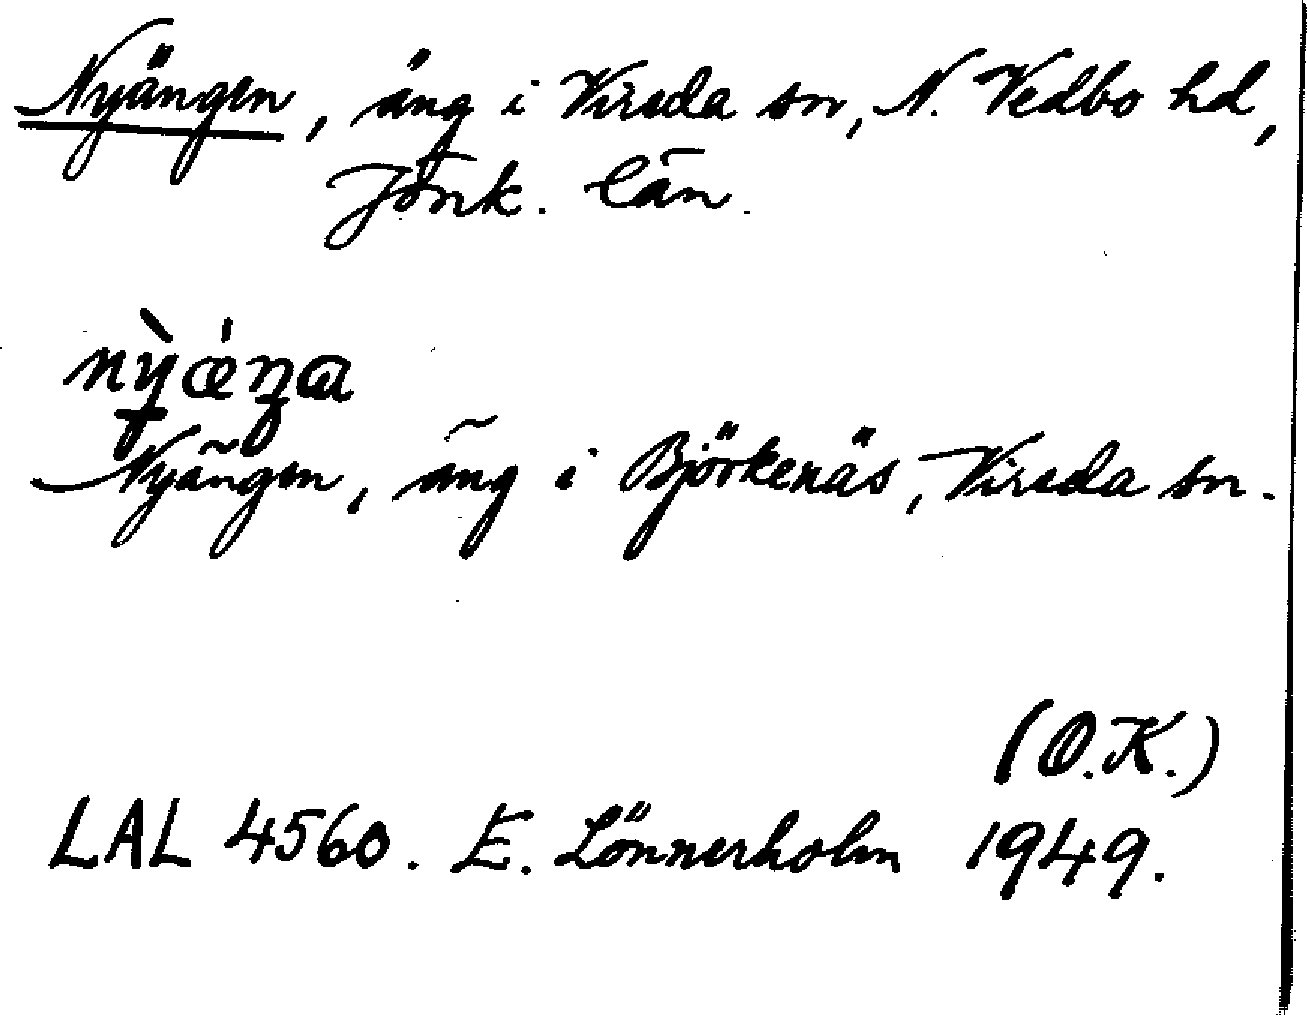 Nyängen, äng i Vireda sn, N. Vedbo hd,
Jönk. län.
nỳǽŋa
Nyängen, äng i Björkenäs, Vireda sn.
(O.K.)
LAL 4560. E. Lönnerholm 1949.